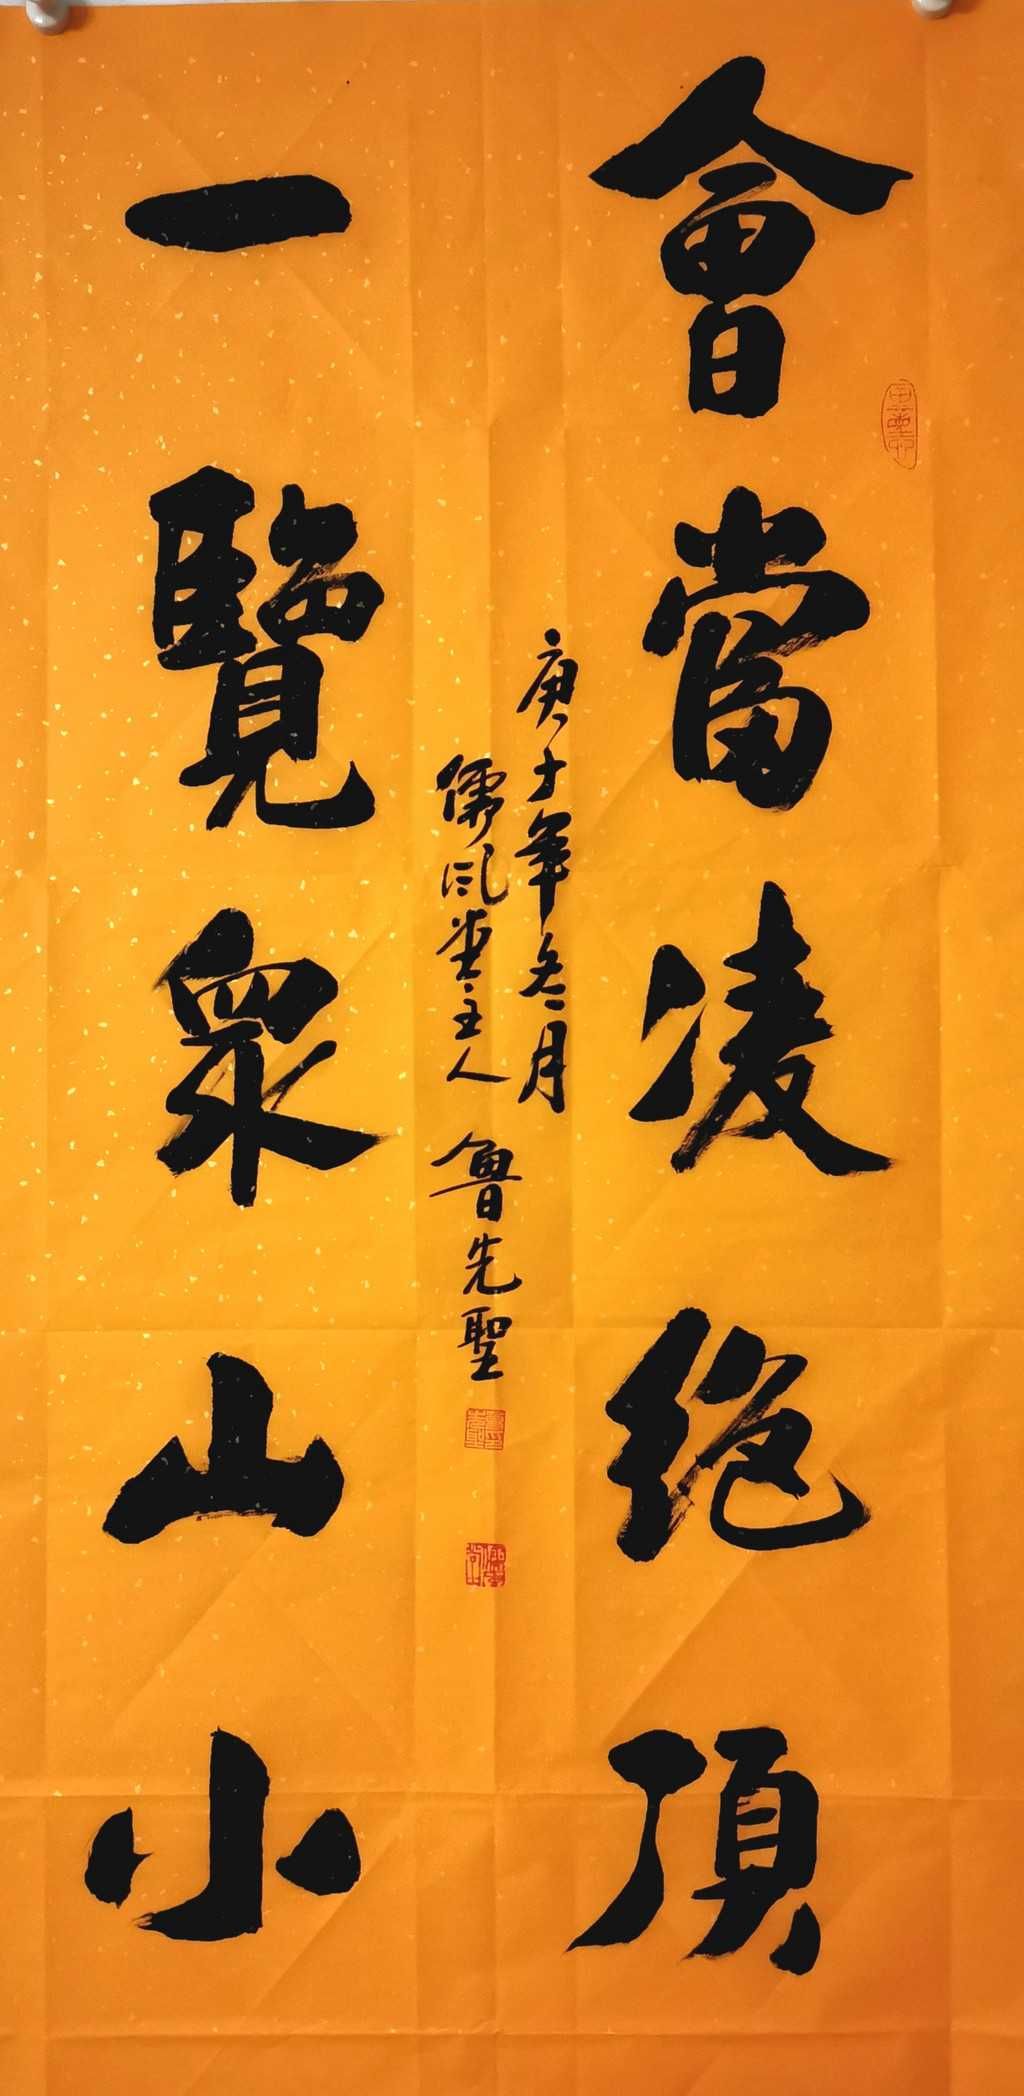 會當凌絕頂
一覽眾山小
庚子年冬月
儒風堂主人 魯先聖